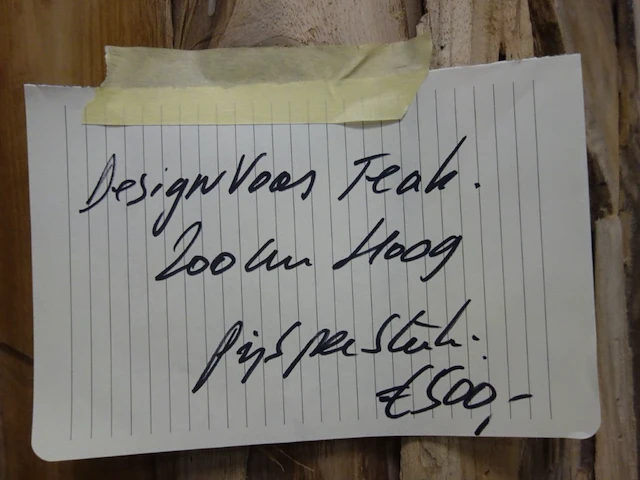 Design Vaas Teak.
200 cm Hoog
prijs per Stuk.
€500,-